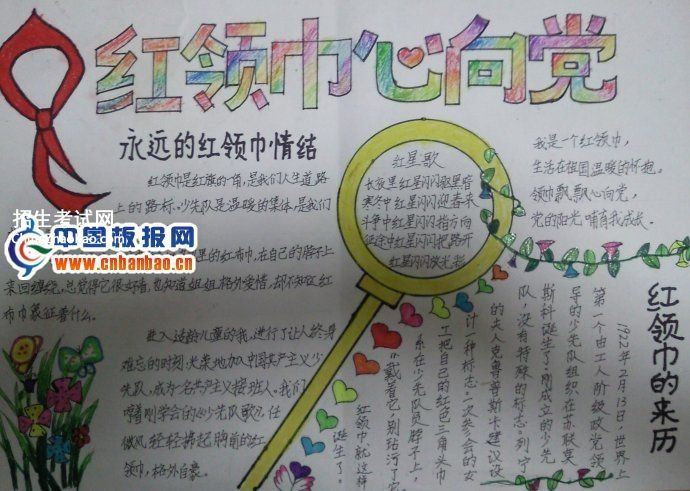 红领巾心向党
永远的红领巾情结
红领巾是红旗的一角，是我们人生道路
上的路标。少先队是温暖的集体，是我们
招生考试网
中学板报网
www.cnbanbao.cn
里的红布巾，在自己的脖子上
来回缠绕，总觉得它很好看，
格外爱惜，却不知这红
布巾象征着什么。
进入适龄儿童的我，进行了让人终身
难忘的时刻，光荣地加入中国共产主义少
先队，成为一名共产主义接班人。我们
哼着刚学会的《少先队歌》，任
微风轻轻拂起胸前的红
领巾，格外自豪。
红星歌
长夜里红星闪闪驱黑暗
寒冬中红星闪闪迎春来
斗争中红星闪闪指方向
征途中红星闪闪把路开
红星闪闪放光彩
我是一个红领巾，
生活在祖国温暖的怀抱。
领巾飘飘心向党，
党的阳光哺育我成长。
红领巾的来历
1922年2月13日，世界上
第一个由工人阶级政党领
导的少先队组织在苏联莫
斯科诞生了。刚成立的少先
队，没有特殊的标志。列宁
的夫人克鲁普斯卡建议设
计一种标志。一次集会的女
工把自己的红色三角头巾
系在少先队员脖子上，
“戴着它，别玷污了它
红领巾就这样
诞生了。